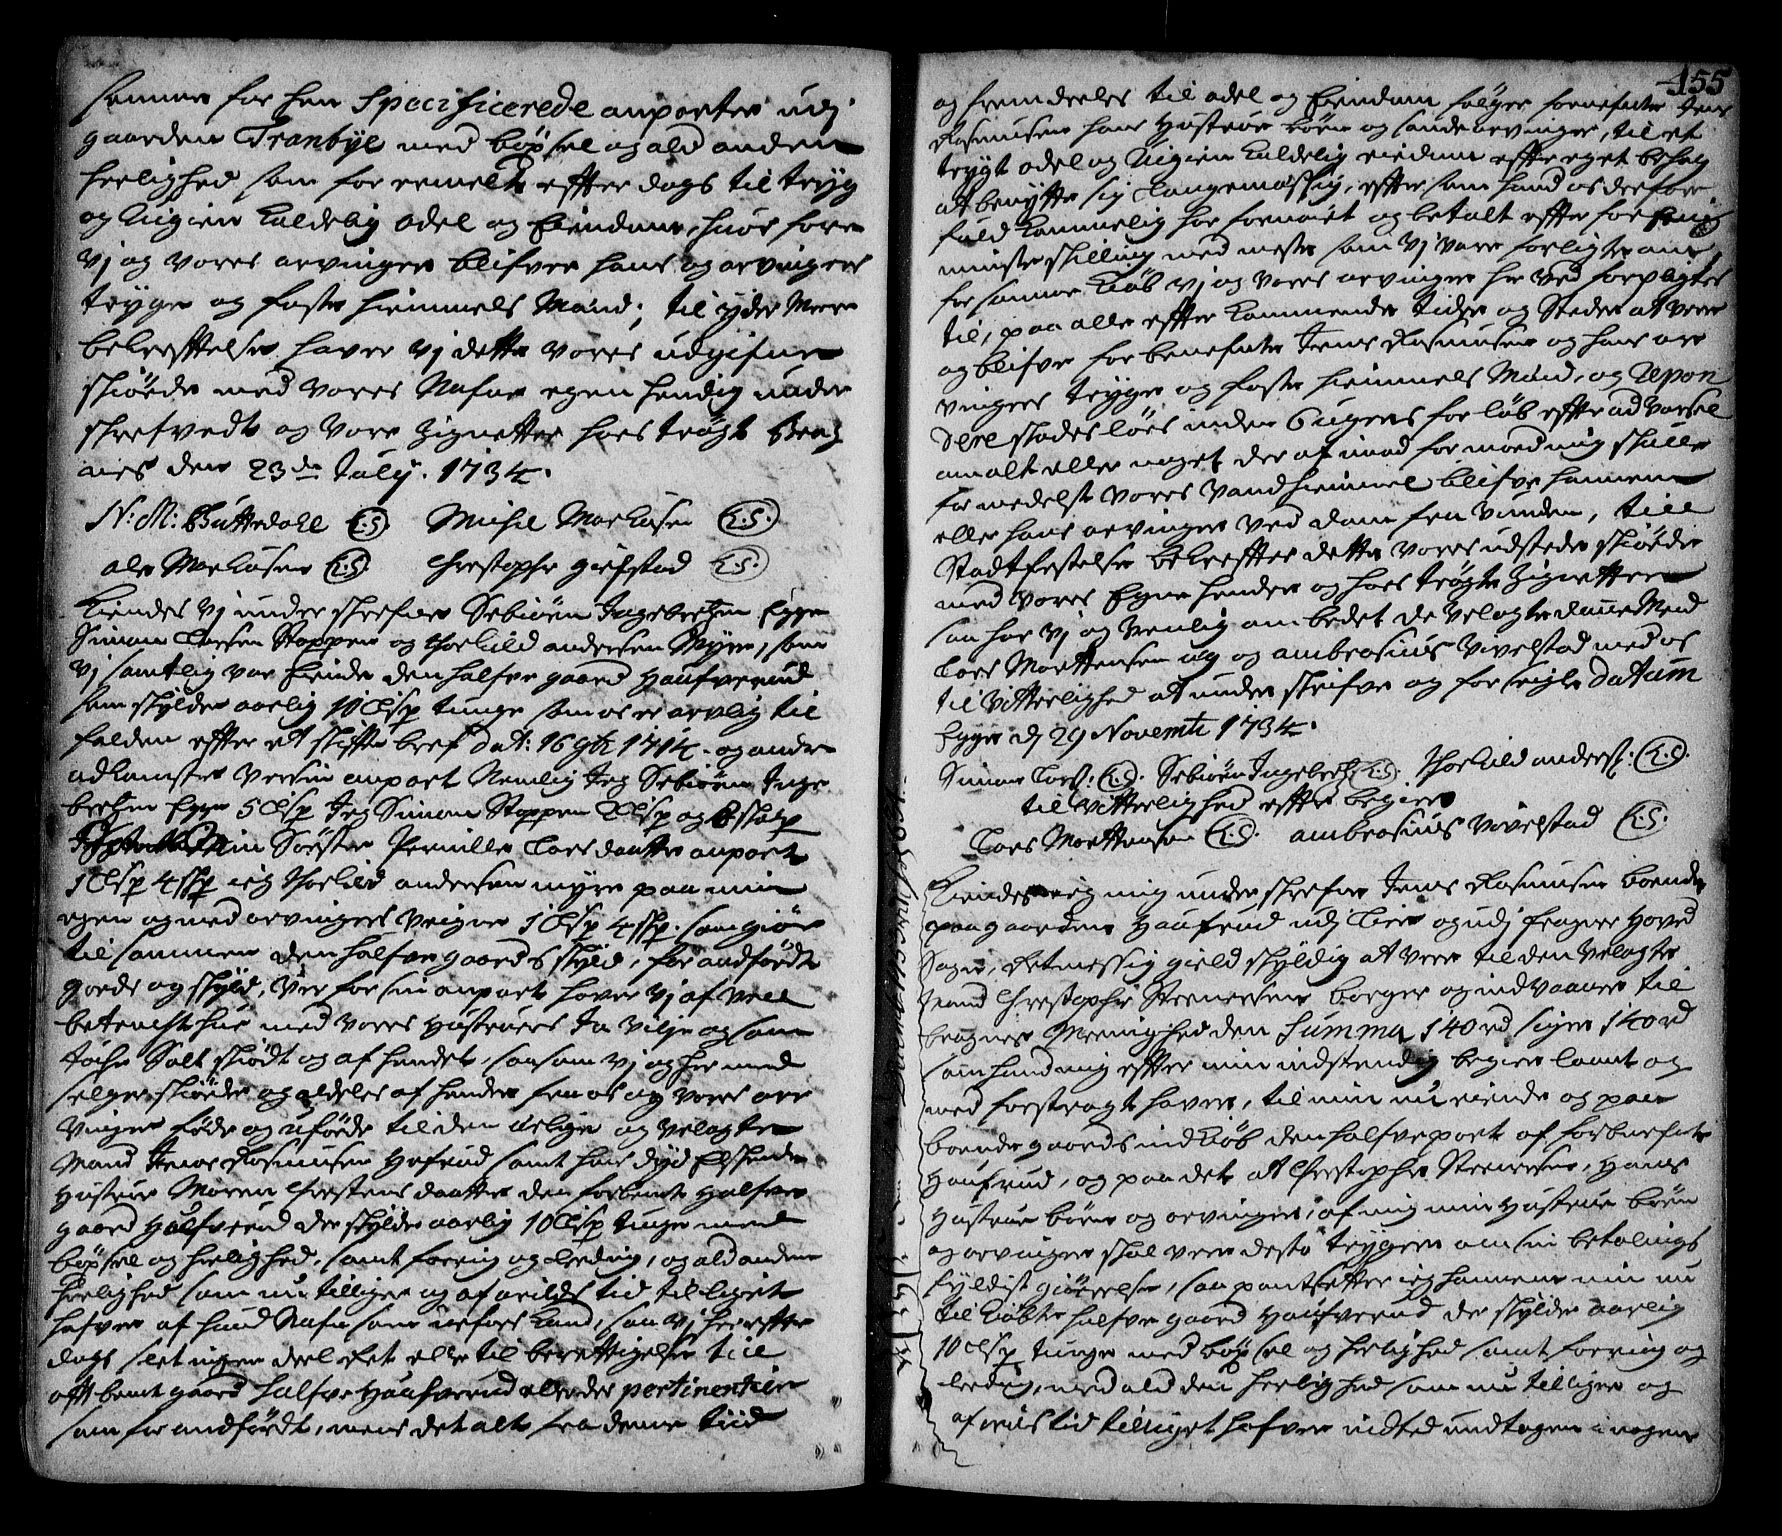 sammer for hen Specificerede anparter udj
gaarden Tranbÿe med böxsel og ald anden
herlighed som for ermelt effter dags til trÿg
og Uigien Kaldelig odel og Eiendom, huor fore
Vj og Vores arvinger blifver hans og arvingers
trÿge og faste hiemmels Mænd; til ÿder Mere
bekrefftelse haver Vj dette Vores udgifne
skiöde med Vores Nafne egen hendig under
skrefvedt og Vore Zignetter hoes trögt
den 23de Julÿ. 1734.
N: M: Büttedahl L.S. Michel Markusen L.S.
ole Markusen L.S. Chrestopher giefstad L.S.
Kiendes Vj under skrefne Sebiörn Ingebretzen Egge
Simon Larsen Stoppen og Thorkild andersen Mÿre, som
Vj samtlig var Eiende den halfve gaard Haufverud
som skÿlder aarlig 10 Lisp tunge som os er arvlig til
falden effter et skiffte bref dat: 16 9br 1714. og andre
adkomster Versin anpart Nemlig Jeg Sebiörn Inge
bretzen Egge 5 Lisp Jeg Simon Stoppen 2 Lisp og 8 skaalp
Min Söster Pernille Lars daatter anpart
1 Lisp 4 sp ieg Thorkild andersen mÿre paa min
egen og med arvingers Veigne 1 Lisp 4 sp. som giör
til sammen den halfve gaards skÿld, for andfördte
goeds og skÿld, Ver for sin anpart haver Vj af Vell
betenckt hue med Vores Hustruers Ja Vilje og sam
töche Solt skiödt og af hendet, saasom Vj og her med
selger skiöder og aldeles af hender fra os og Vores arv
Vinger föde og uföde til den erlige og Velagte
Mand Jens Rasmusen Hafrud samt hans dÿd Elskende
Hustrue Maren Chrestens daatter den forbemt halfve
gaard Halfverud der skÿlder aarlig 10 Lisp tunge med
böxsel og herlighed, samt foring og Leding, og ald anden
herlighed som nu tilliger og af arilds tid tilliget
hafver af hvad Nafn som nefnes Kand, saa Vj her effter
dags slet ingen deel Ret eller til berettigelse till
offt bemt gaard halfve Haufverud eller des pertinentier
som for andfördt, mens det alt fra denne tiid
155
og fremdeeles til odel og Eiendom fölger fornefnte Jens
Rasmusen hans Hustrue börn og sande arvinger, til et
trÿgt odel og Uigien Kaldelig eiedom effter eget behag
at benÿtte sig Laugmæssig, effter som hand os derfor
fuld Kommelig har fornöiet og betalt effter foreenig
minste skilling med meste som Vj vare forligte om
for samme Kiöb Vj og Vores arvinger her Ved forplagter
til, paa alle effter Kommende tider og Steder at Vere
og blifve for benefnte Jens Rasmusen og hans ar
vingers trÿge og faste hiemmels Mænd, og Upon
dere skades lös inden 6 ugers for löb effter ad Varsel
om alt eller noget der af imod formoedning skulle
formedelst Vores Vand hiemmel blifve hannem
eller hans arvinger Ved dom fra Vunden, till
Stadtfestelse bekreffter dette Vores udstede skiöde
med Vores Egne hender og hoes trögte Zignetter
saa har Vj og Venlig ombedet de Velagte danne Mend
Lars Morttensen og ambrosius Vivelstad med os
til Vitterlighed at under skrifve og forseigle datum
Egge d 29 Novembr 1734.
Simon Lars: L.S. Sebiörn Ingebretz L.S. Thorkild anders: L.S.
til Vitterlighed effter begier
Lars Morttensen L.S. ambrosius Vivelstad L.S.
Kiendes ieg mig under skrefne Jens Rasmusen boende
paa gaarden Haufrud udj Lier og udj fragner Hoved
Sogn, Retmessig gield skÿldig at Vere til den Velagte
Mand Chrestopher Steenersen borger og indvaaner til
bragnes Menighed den Summa 140 rd siger 140 rd
som hand mig effter min indstendig begier laant og
med forstragt haver, til min nu eiende og paa
boende gaards ind Kiöb den halfve part af forbenefnte
Haufrud, og paa det at Chrestopher Steenersen, Hans
Hustrue börn og arvinger, af mig min Hustrue börn
og arvinger skal vere desto trÿgere om sin betalings
fÿldist giörelse, saa pantsetter ieg hannem min nu
til Kiöbte halfve gaard Haufverud der skÿlder aarlig
10 Lisp tunge med böxsel og herlighed samt foring og
leding, med ald den herlighed som nu tilliger og
af arils tid tilliget hafver indted undtagen i nogen